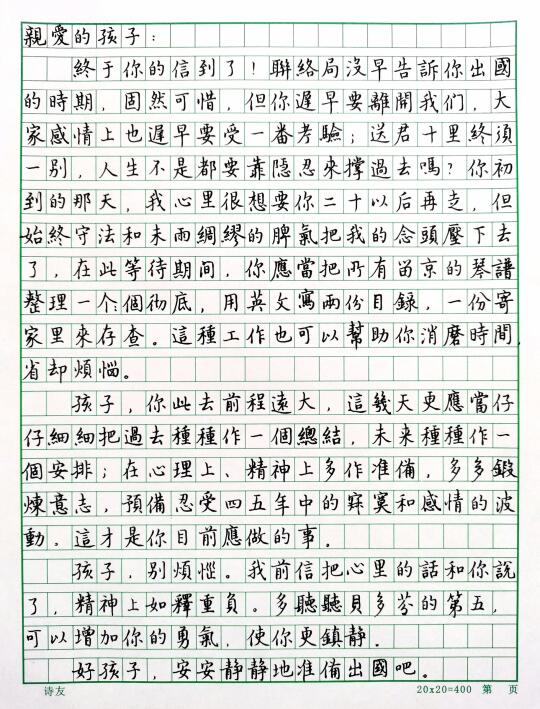 親愛的孩子：
終于你的信到了！聯絡局沒早告訴你出國
的時期，固然可惜，但你遲早要離開我们，大
家感情上也遲早要受一番考驗；送君十里終須
一别，人生不是都要靠隱忍來撐過去嗎？你初
到的那天，我心里很想要你二十以后再走，但
始終守法和未雨綢繆的脾氣把我的念頭壓下去
了，在此等待期间，你應當把所有留京的琴譜
整理一个個彻底，用英文寫兩份目録，一份寄
家里來存查。這種工作也可以幫助你消磨時間，
省却煩惱。
孩子，你此去前程遠大，這幾天更應當仔
仔細細把過去種種作一個總結，未来種種作一
個安排；在心理上、精神上多作准備，多多鍛
煉意志，預備忍受四五年中的寂寞和感情的波
動。這才是你目前應做的事．
孩子，别煩惱。我前信把心里的話和你說
了，精神上如釋重負。多聽聽貝多芬的第五，
可以增加你的勇氣，使你更鎮静．
好孩子，安安静静地准備出國吧。
诗友 20x20=400 第 页